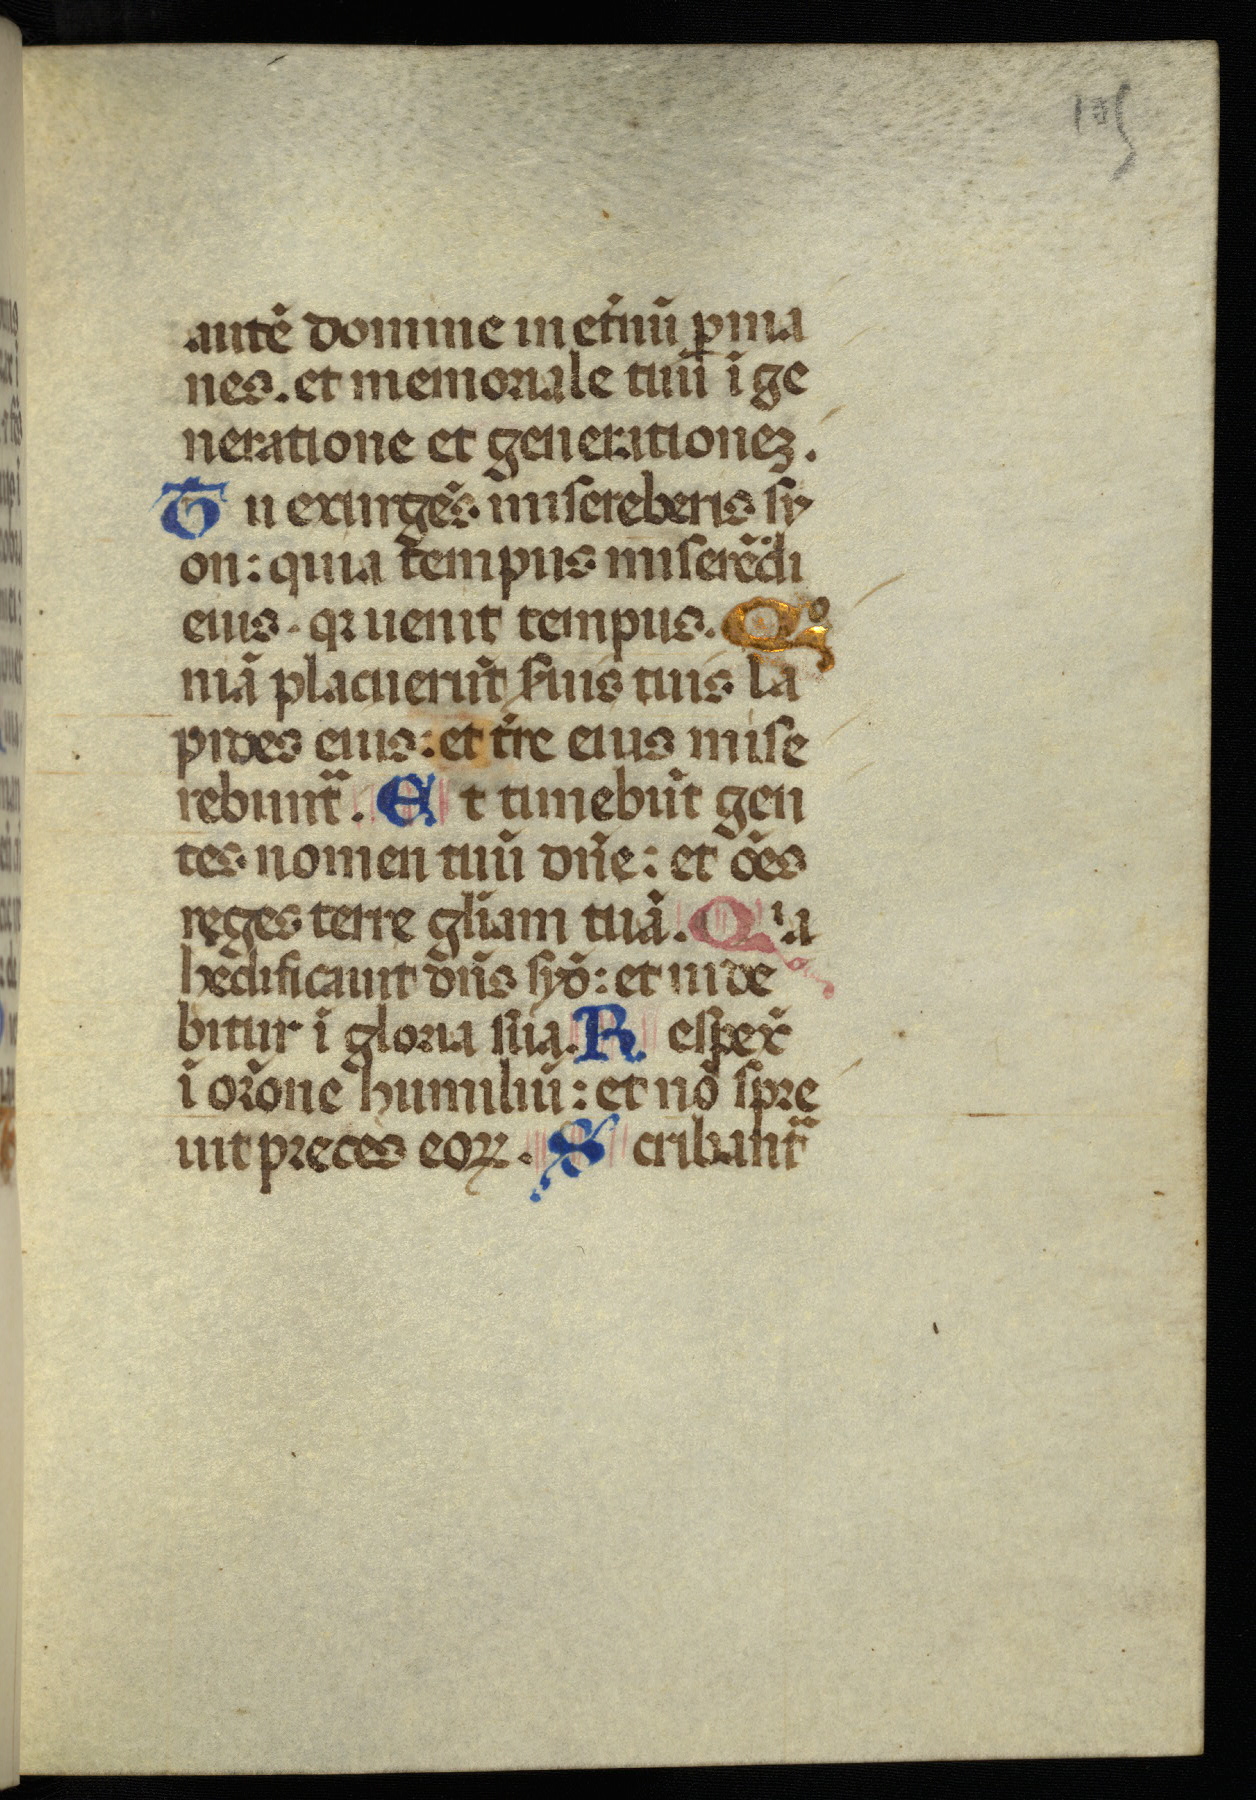 135
autē domine in et̄nū ꝑma
nes. et memoriale tuū ī ge
neratione et generationeꝫ.
Tu exurgēs misereberis sy
on: quia tempus miserēdi
eius. qꝛ uenit tempus. Qº
niā placuerūt s̄uis tuis la
pides eius: et t̄re eius mise
rebunt᷑. Et timebūt gen
tes nomen tuū dn̄e: et oēs
reges terre gl̄iam tuā. Qⁱa
hedificauit dn̄s syō: et uide
bitur ī gloria sua. Respex̄
ī or̄one humiliū: et nō spre
uit preces eoꝝ. Scribant᷑